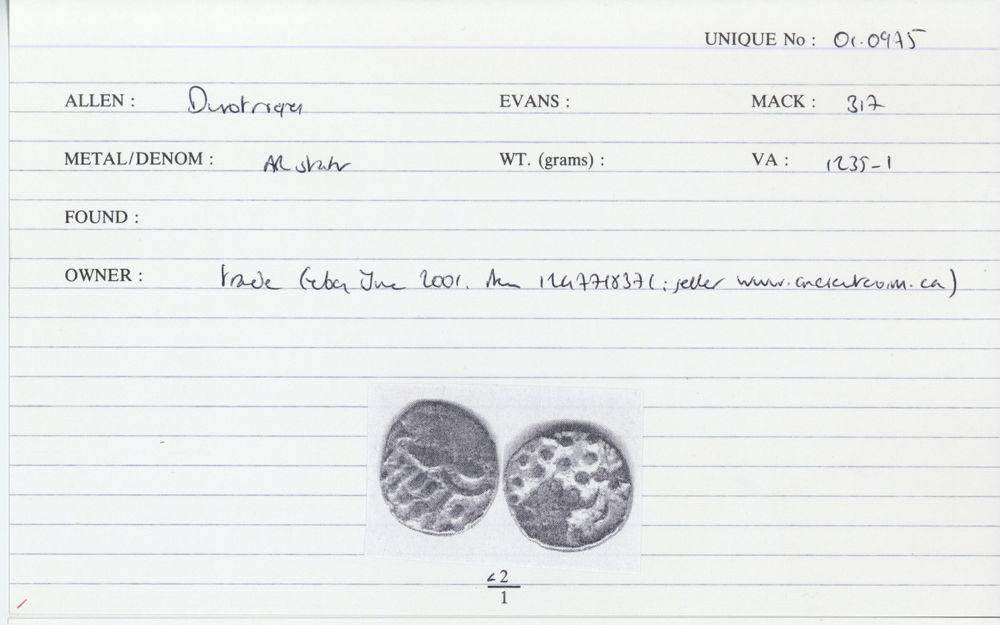 UNIQUE No : 01.0975
ALLEN : Durotriges EVANS : MACK : 317
METAL/DENOM : AR stater WT. (grams) : VA : 1235-1
FOUND :
OWNER : trade (eBay June 2001. Item 1247718371 : seller www.ancientcoin.ca)
<2
1